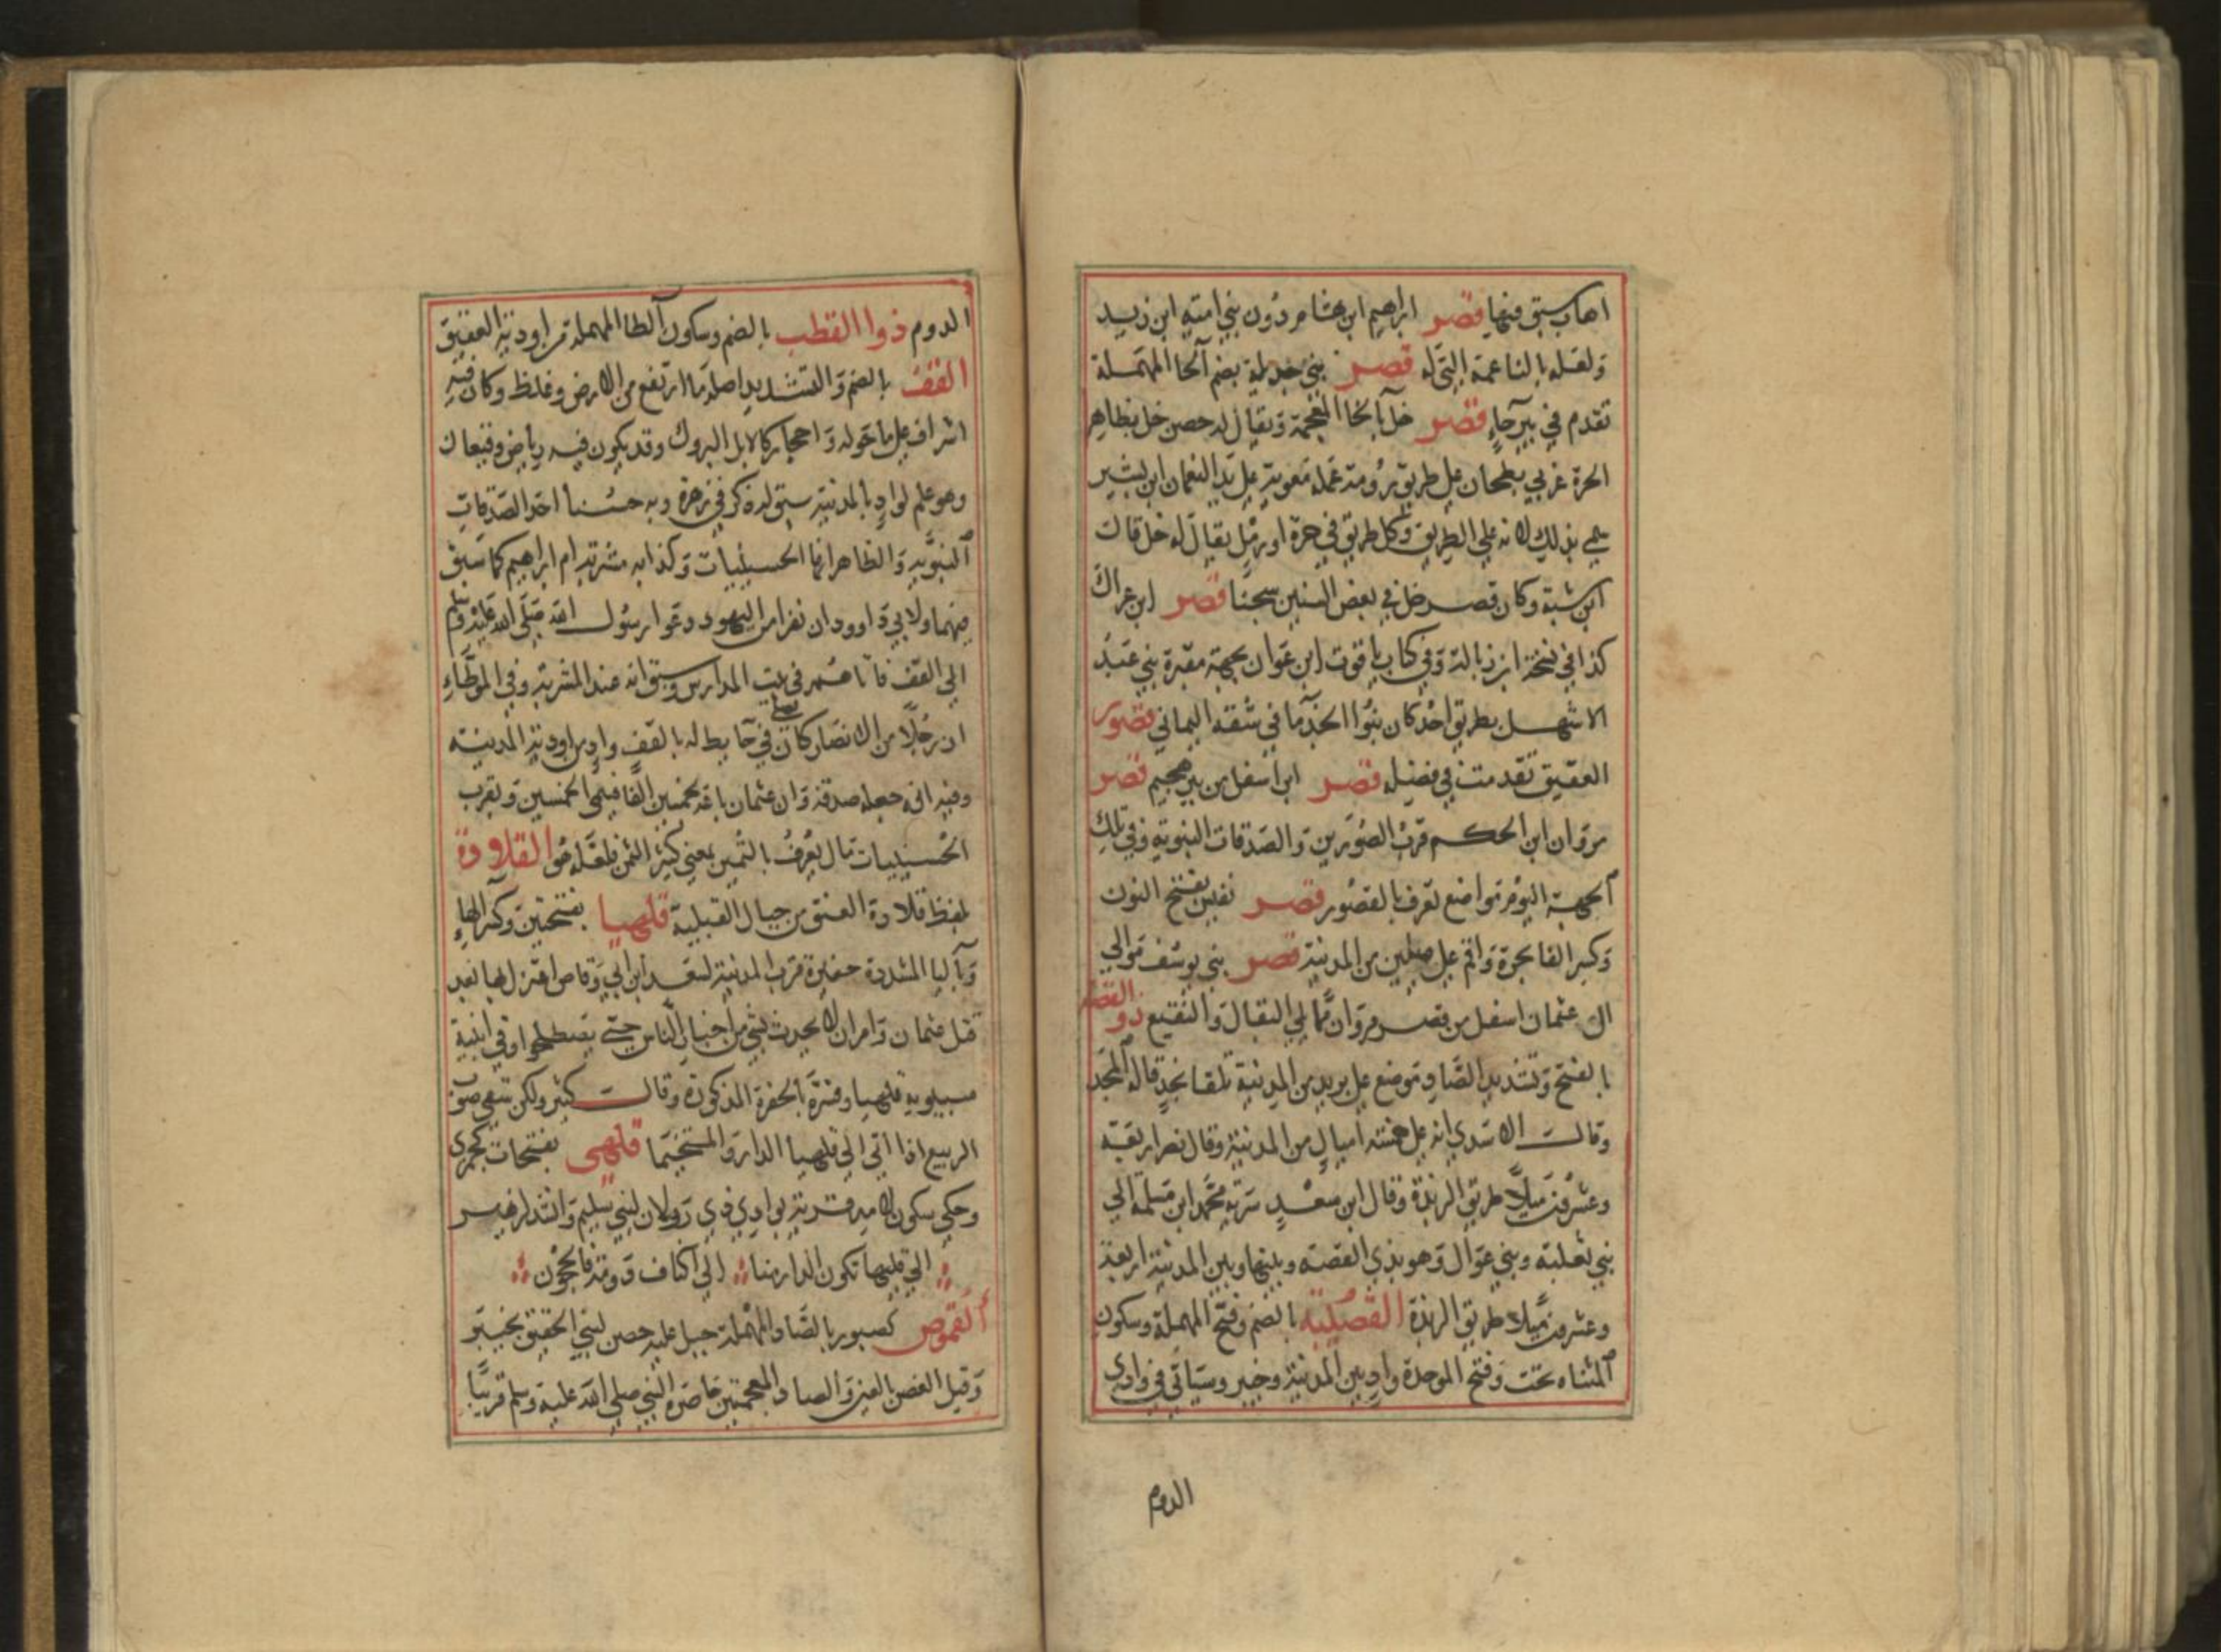 اهاب سبق فيها قصر ابراهيم ابن هشام دون بني امية ابن زيد
ولعله بالناعمة التي له قصر بني حديلة بضم الحا المهملة
تقدم في بيرحاء قصر خل بالخا المعجمة ويقال له حصن خل بظاهر
الحرة غربي بطحان على طريق رومة عمله معوية على يد النعمان ابن بشير
سمي بذلك لانه على الطريق وكل طريق في حرة او رمل يقال له خل قالت
ابن شبة وكان قصر خل في بعض السنين سجنا قصر ابن عراك
كذا في نسخة ابن زبالة وفي كتاب ياقوت ابن عوان بجهة مقبرة بني عبد
الاشهل بطريق احد كان بنوا الجذما في شقه اليماني قصور
العقيق تقدمت في فضله قصر ابن اسفل من بير هجيم قصر
مروان ابن الحكم قرب الصورين والصدقات النبوية وفي تلك
الجهة اليوم مواضع تعرف بالقصور قصر نفيس بفتح النون
وكسر الفا بحرة واقم على ميلين من المدينة قصر بني يوسف موالي
ال عثمان اسفل من قصر مروان مما يلي البقال والنقيع ذو القصه
بالفتح وتشديد الصاد موضع على بريد من المدينة تلقا نجد قاله المجد
وقالت الاسدي انه على خمسة اميال من المدينة وقال نصر اربعة
وعشرون ميلا طريق الربذة وقال ابن سعد سرية محمد ابن مسلمة الي
بني ثعلبة وبني عوال وهو بذي القصة وبينها وبين المدينة اربعة
وعشرون ميلا طريق الربذة القصيبة بالضم وفتح المهملة وسكون
المثناه تحت وفتح الموحدة واد بين المدينة وخيبر وسياتي في وادي
الدوم
الدوم ذوا القطب بالضم وسكون الطا المهملة من اودية العقيق
القف بالضم والتشديد اصله ما ارتفع من الارض وغلظ وكان فيه
اشراف على ما حوله واحجار كالابل البروك وقد يكون فيه رياض وقيعان
وهو علم لواد بالمدينة سبق له ذكر في زهرة وبه حسنا احد الصدقات
النبوية والظاهر انها الحسينيات وكذا به مشربة ام ابراهيم كما سبق
فيهما ولابي داوود ان نفرا من اليهود دعوا رسول الله صلى الله عليه وسلم
الي القف فاتاهم في بيت المدارس وسبق انه عند المشربة وفي الموطاء
ان رجلا من الانصار كان يصلي في حايط له بالقف واد من اودية المدينة
وفيه انه جعله صدقة وان عثمان باعه بخمسين الفا فسمي الخمسين وبقرب
الحسينيات مال يعرف بالثمين بمعني كثير الثمن فلعله هو القلادة
بلفظ قلادة العنق من جبال القبلية قلهيا بفتحتين وكسر الهاء
وباليا المشددة حفيرة قرب المدينة لسعد ابن ابي وقاص اعتزل بها بعد
قتل عثمان وامر ان لا يحدث بشي من اخبار الناس حتى يصطلحوا وفي ابنية
سيبويه قلهيا وفسره بالحفرة المذكورة وقالت كثير ولكن سقي صوب
الربيع اذا اتي الي قلهيا الدار والمتخيما قلهى بفتحات كجمزى
وحكي سكون لامه قرية بوادي ذي رولان لبني سليم وانشد لزهير
الي قلهيا تكون الدار منا الي اكناف دومة فالحجون
القموص كصبور بالصاد المهملة جبل عليه حصن لبني الحقيق بخيبر
وقيل الغضن بالغين والضاد المعجمتين حاصره النبي صلى الله عليه وسلم قريبا